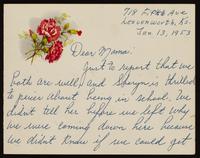 719 Ave
Leavenworth, Ks.
Jan. 13, 1953
Dear Mamai:
Just to report that we
both are well and Sharyn is thrilled
to pieces about being in school. We
didn't tell her before we left why
we were coming down here because
we didn't know if we could get